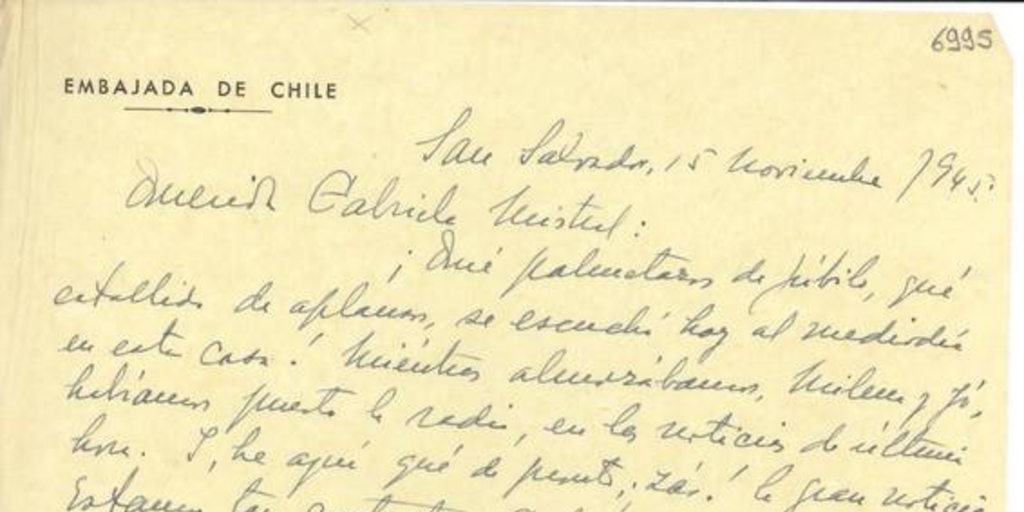 6995
EMBAJADA DE CHILE
San Salvador, 15 Noviembre 1945.
Querida Gabriela Mistral:
¡Qué palmetazos de júbilo, qué
estallido de aplausos, se escuchó hoy al mediodía
en esta casa! Mientras almorzábamos, Milena y yó,
habíamos puesto la radio, en las noticias de última
hora. I, he aquí qué de pronto, ¡zás! la gran noticia
Estamos tan